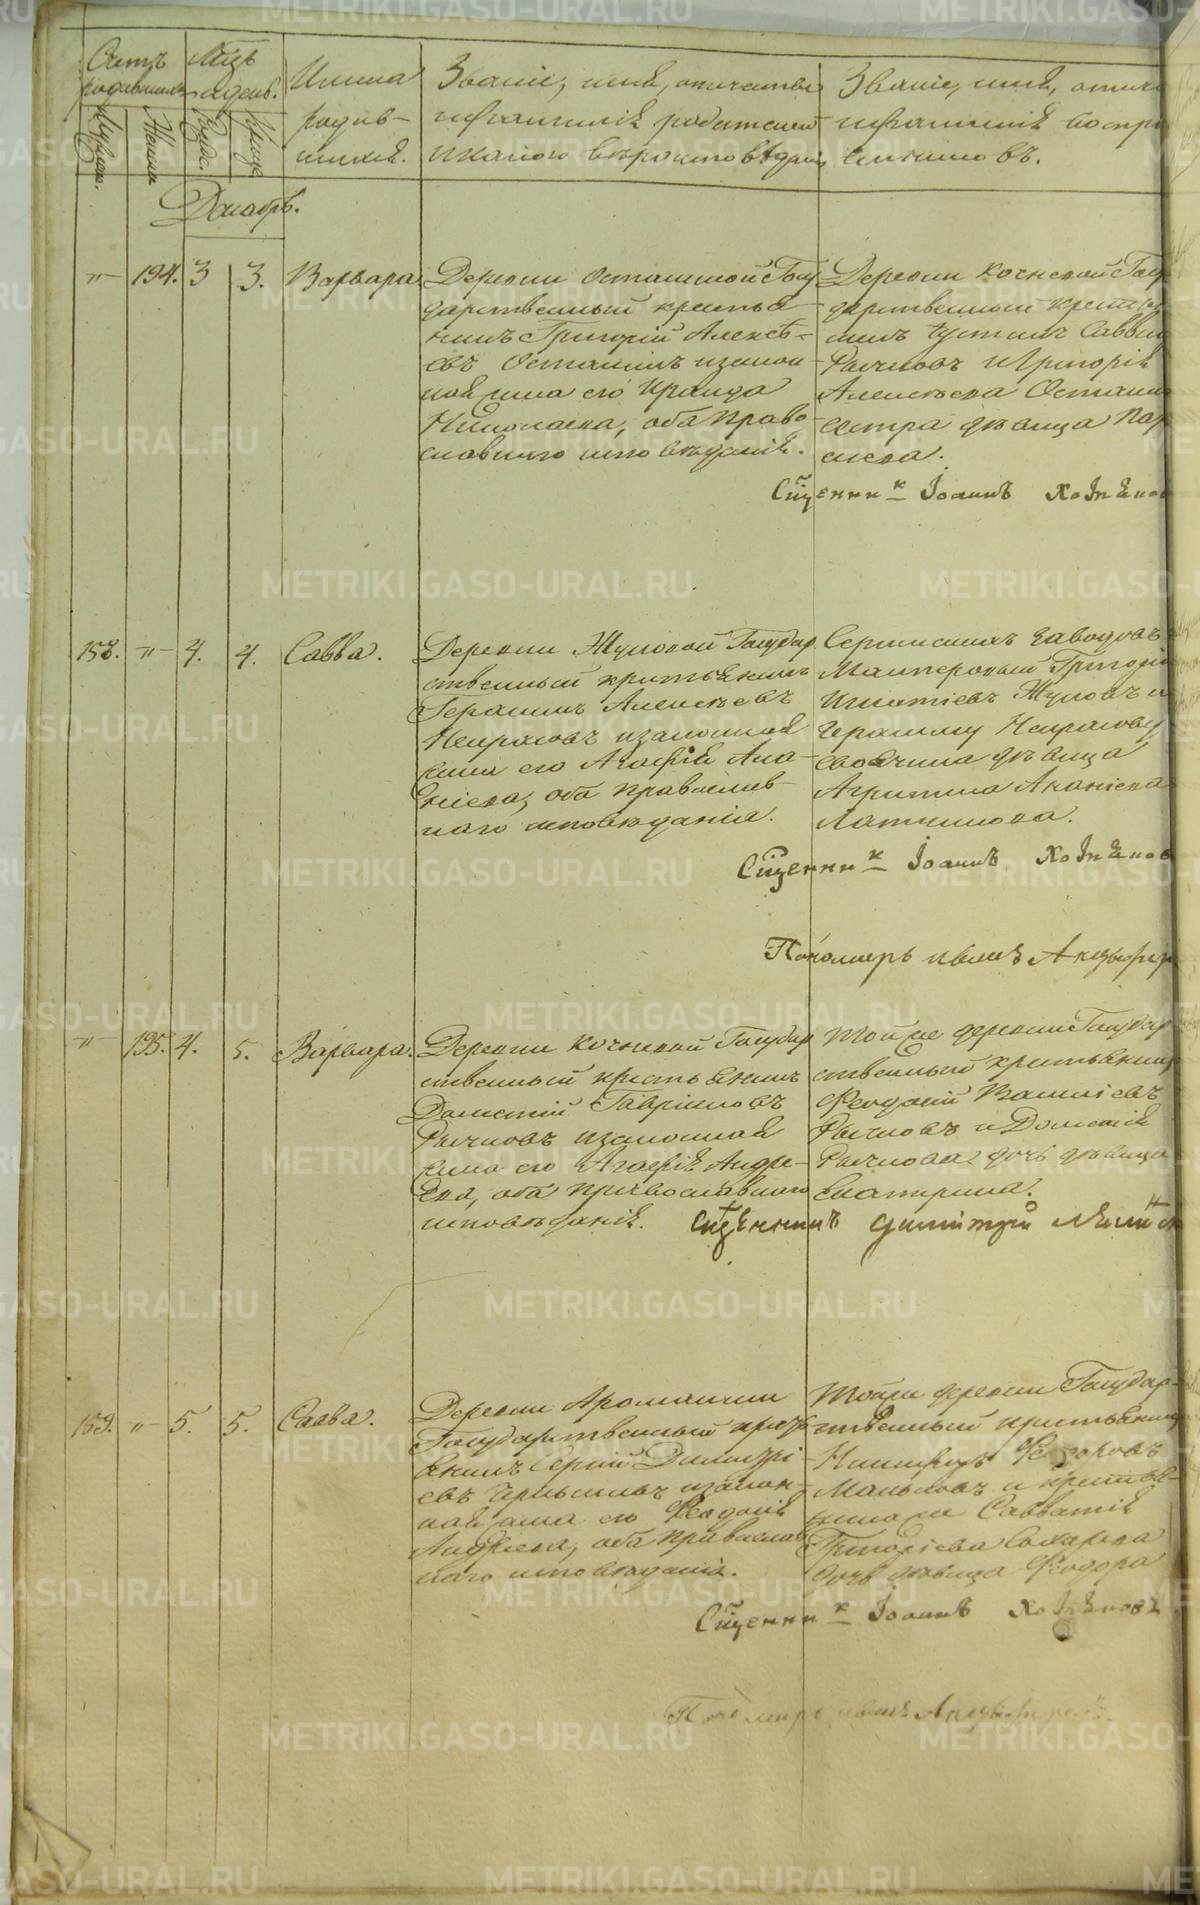 Счетъ родившихся
Мужск.
Женск.
Мѣс. и день.
Рожд.
Крещ.
Имена
родив-
шихся.
Званіе, имя, отчество
и фамилія родителей
и какого вѣроисповѣданія
Званіе, имя, отче
и фамилія воспрі
емниковъ.
Декабрь.
"
194.
3
3.
Варвара
Деревни Останиной Госу
дарственный крестья-
нинъ Григорій Алексѣ-
евъ Останинъ и закон
ная жена его Ираида
Николаева, оба право-
славнаго исповѣданія.
Деревни Кочневой Госу
дарственный крестья
нинъ Іустинъ Савви
Рычковъ и Григорія
Алексѣева Остани
сестра дѣвица Пар
Священникъ Іоаннъ
158.
"
4.
4.
Савва.
Деревни Жуковой Государ
ственный крестьянинъ
Герасимъ Алексѣевъ
Некрасовъ и законная
жена его Агафія Ана-
ніева, оба православ-
наго исповѣданія.
заводовъ
Мастеровый Григорій
Игнатіевъ Жуковъ и
Герасиму Некрасову
своячина дѣвица
Ананіева
Священникъ Іоаннъ
Пономарь
"
195.
4.
5.
Варвара.
Деревни Кочневой Государ
ственный крестьянинъ
Дометій Гавріиловъ
Рычковъ и законная
жена его Агафія Андре-
ева, оба православнаго
исповѣданія.
Той же деревни Государ
ственный крестьянинъ
Феодосій Василіевъ
Рычковъ и Дометія
Рычкова дочь дѣвица
Екатерина.
Священникъ Димитрій
159.
"
5.
5.
Савва.
Деревни
Государственный кресть
янинъ Сергій Димитрі-
евъ и закон-
ная жена его Феодосія
Андреева, оба православ
наго исповѣданія.
Той же деревни Государ-
ственный крестьянинъ
Никифоръ Феодоровъ
и крестья-
Савватія
Григоріева
дочь дѣвица Феодора
Священникъ Іоаннъ
Пономарь
METRIKI.GASO-URAL.RU